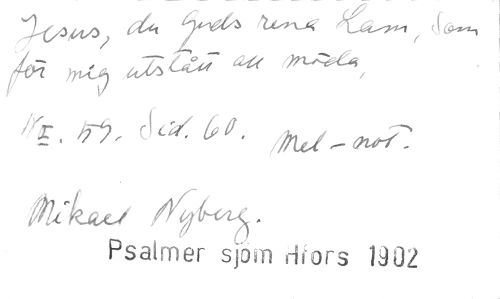 Jesus, du Guds rena Lam, som
för mig utstått all möda,
II. 59. Sid. 60. Mel-not.
Mikael Nyberg.
Psalmer sjöm Hfors 1902